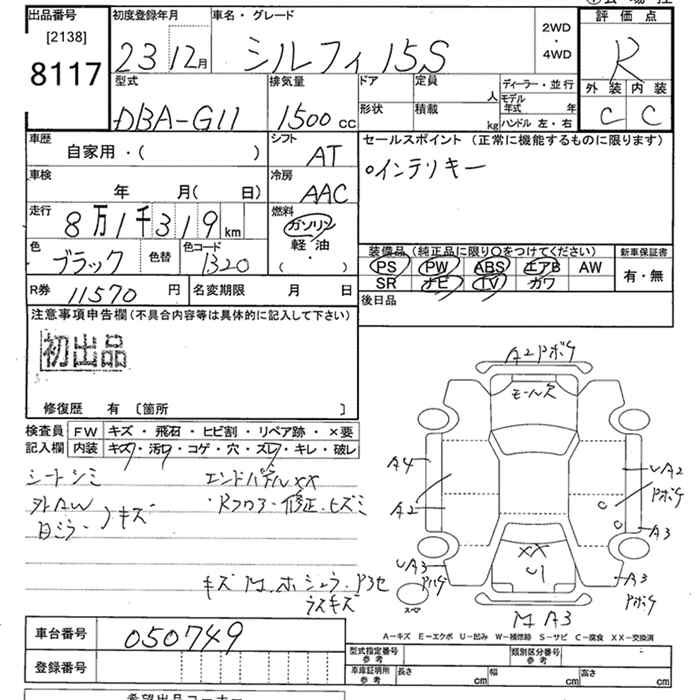 出品番号
[2138]
8117
初度登録年月
23 12月
車名・グレード
シルフィ 15S
2WD
・
4WD
評価点
R
外装 内装
C C
型式
DBA-G11
排気量
1500 cc
ドア
定員
人
形状
積載
kg
ディーラー・並行
モデル年式 年
ハンドル 左・右
車歴
自家用・( )
シフト
AT
セールスポイント (正常に機能するものに限ります)
○インテリキー
車検
年 月( 日)
冷房
AAC
走行
8万1千319km
燃料
ガソリン
軽油
( ・ )
色
ブラック
色替
色コード
1320
装備品 (純正品に限り○をつけてください)
PS PW ABS エアB AW
SR ナビ TV カワ
新車保証書
有・無
R券 11570 円
名変期限 月 日
後日品
注意事項申告欄(不具合内容等は具体的に記入して下さい)
初出品
修復歴 有 〔箇所 〕
検査員記入欄
FW キズ・飛石・ヒビ割・リペア跡・×要
内装 キズ・汚レ・コゲ・穴・スレ・キレ・破レ
シートシミ
エンドパネルXX
外AW
日ミラー
キズ
・Rフロアー修正・ヒズミ
A2 Pボケ
モールヌケ
A4
A2
UA2
Pボケ
A3
UA3
XX
U1
A3
Pボケ
スペア
M A3
A-キズ E-エクボ U-凹み W-補修跡 S-サビ C-腐食 XX-交換済
車台番号 050749
登録番号
型式指定番号 参考
類別区分番号 参考
車庫証明 参考
長さ cm
幅 cm
高さ cm
希望出品コーナー